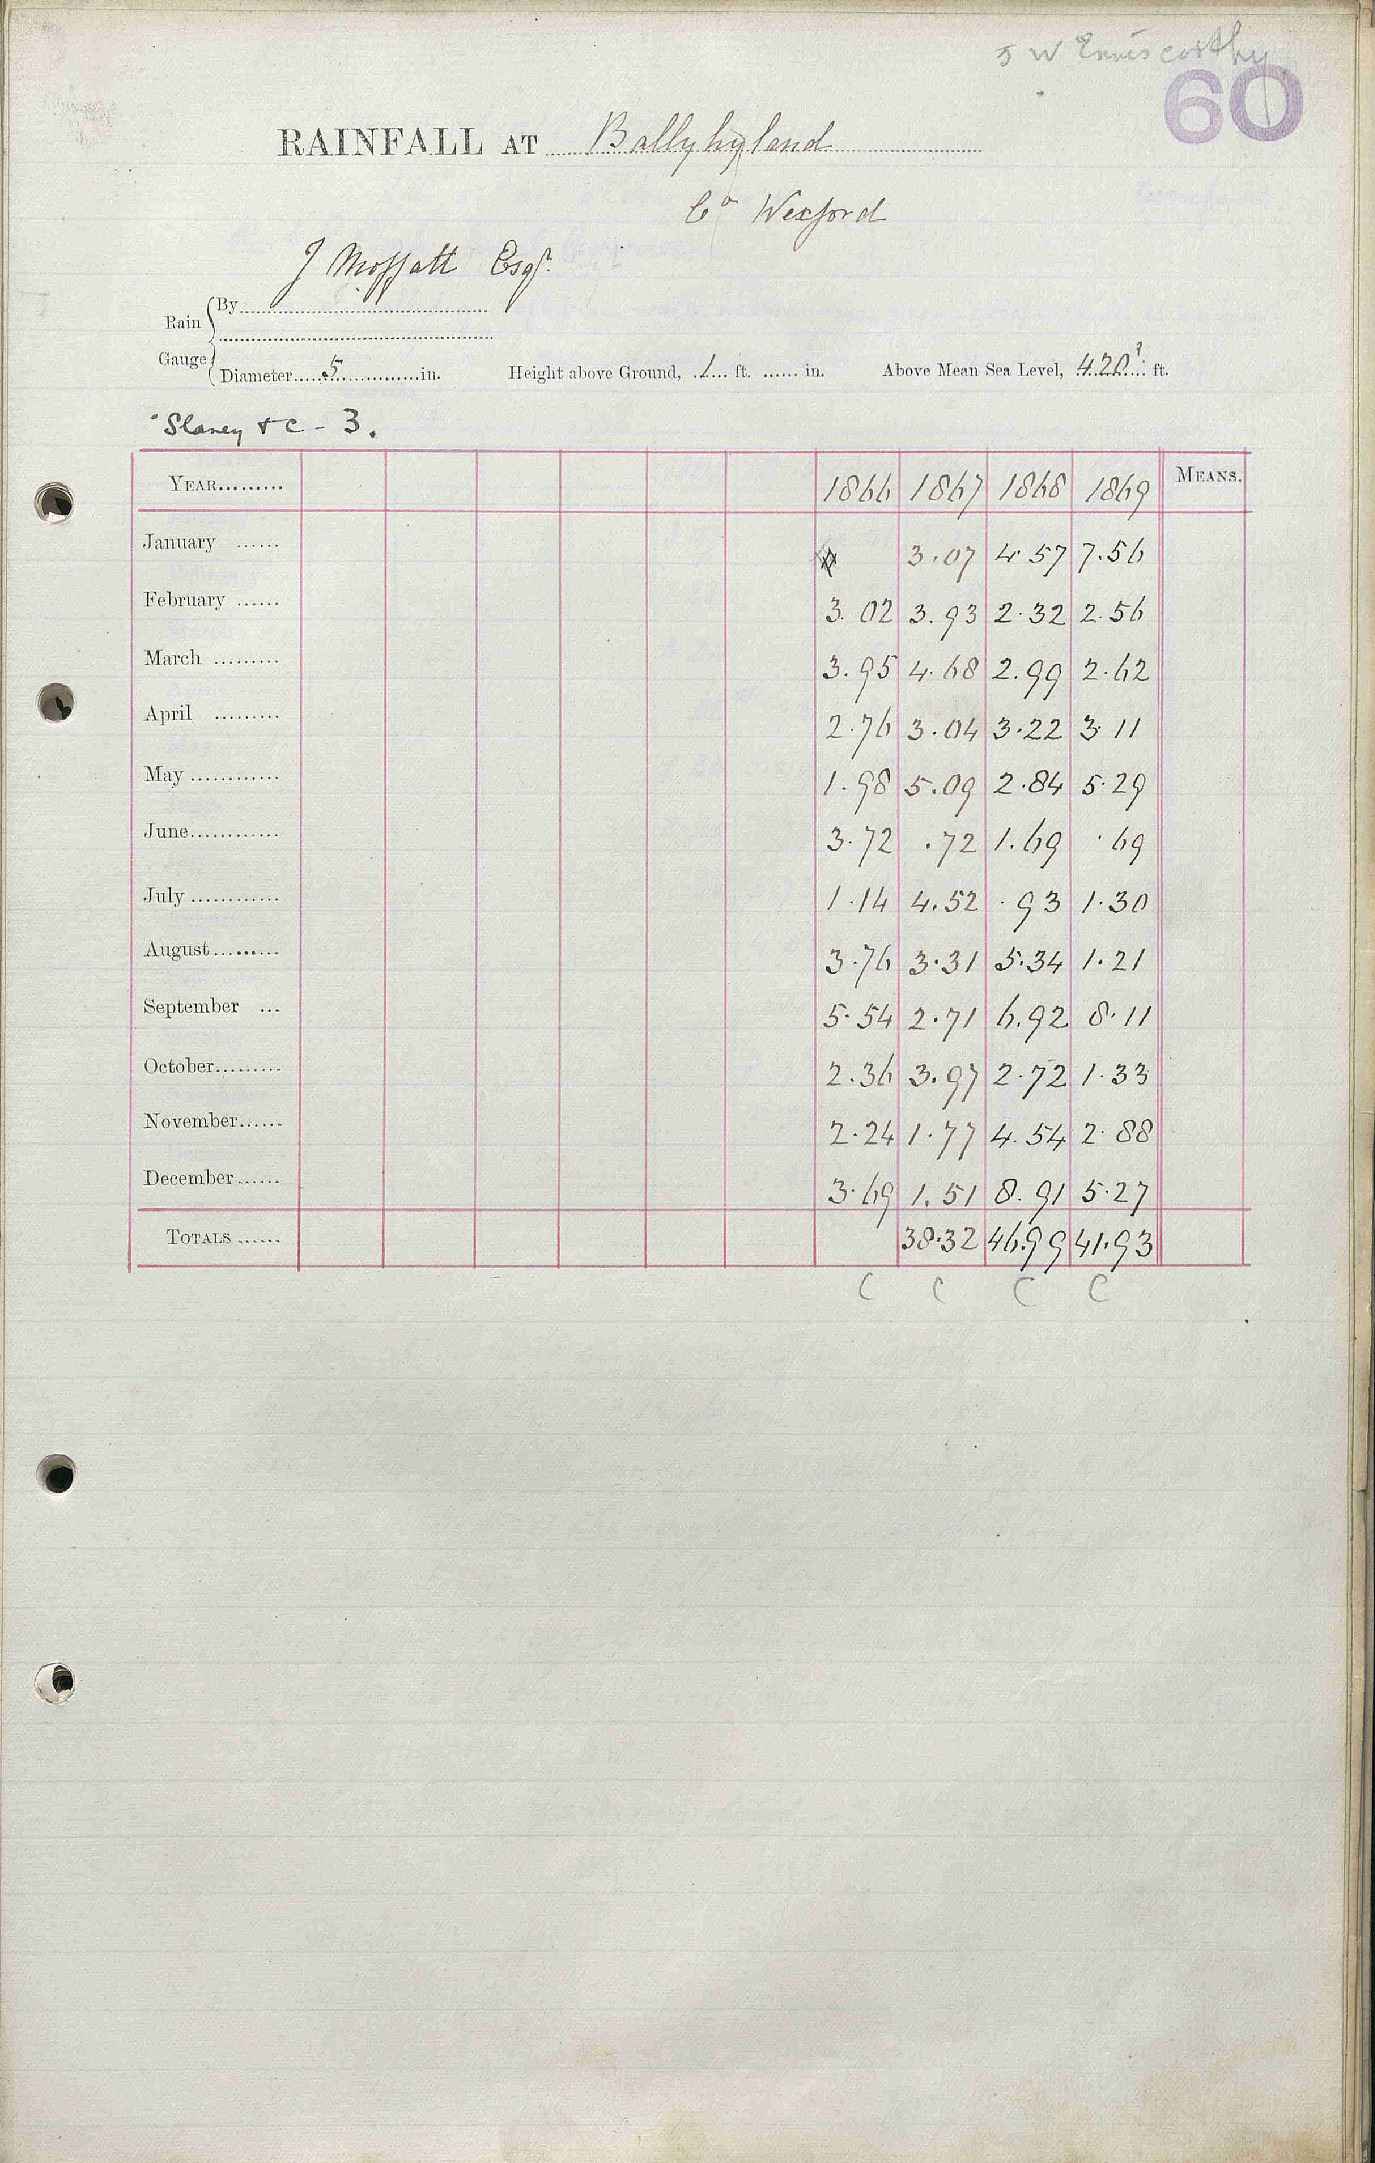 5 W Enniscorthy
60
RAINFALL AT Ballyhyland
Co Wexford
J Moffatt Esqr.
Rain Gauge By
Diameter 5 in. Height above Ground, 1 ft. in. Above Mean Sea Level, 420? ft.
Slaney & C - 3.
YEAR 1866 1867 1868 1869 MEANS.
January 3.07 4.57 7.56
February 3.02 3.93 2.32 2.56
March 3.95 4.68 2.99 2.62
April 2.76 3.04 3.22 3.11
May 1.98 5.09 2.84 5.29
June 3.72 .72 1.69 .69
July 1.14 4.52 .93 1.30
August 3.76 3.31 5.34 1.21
September 5.54 2.71 6.92 8.11
October 2.36 3.97 2.72 1.33
November 2.24 1.77 4.54 2.88
December 3.69 1.51 8.91 5.27
TOTALS 38.32 46.99 41.93
C C C C